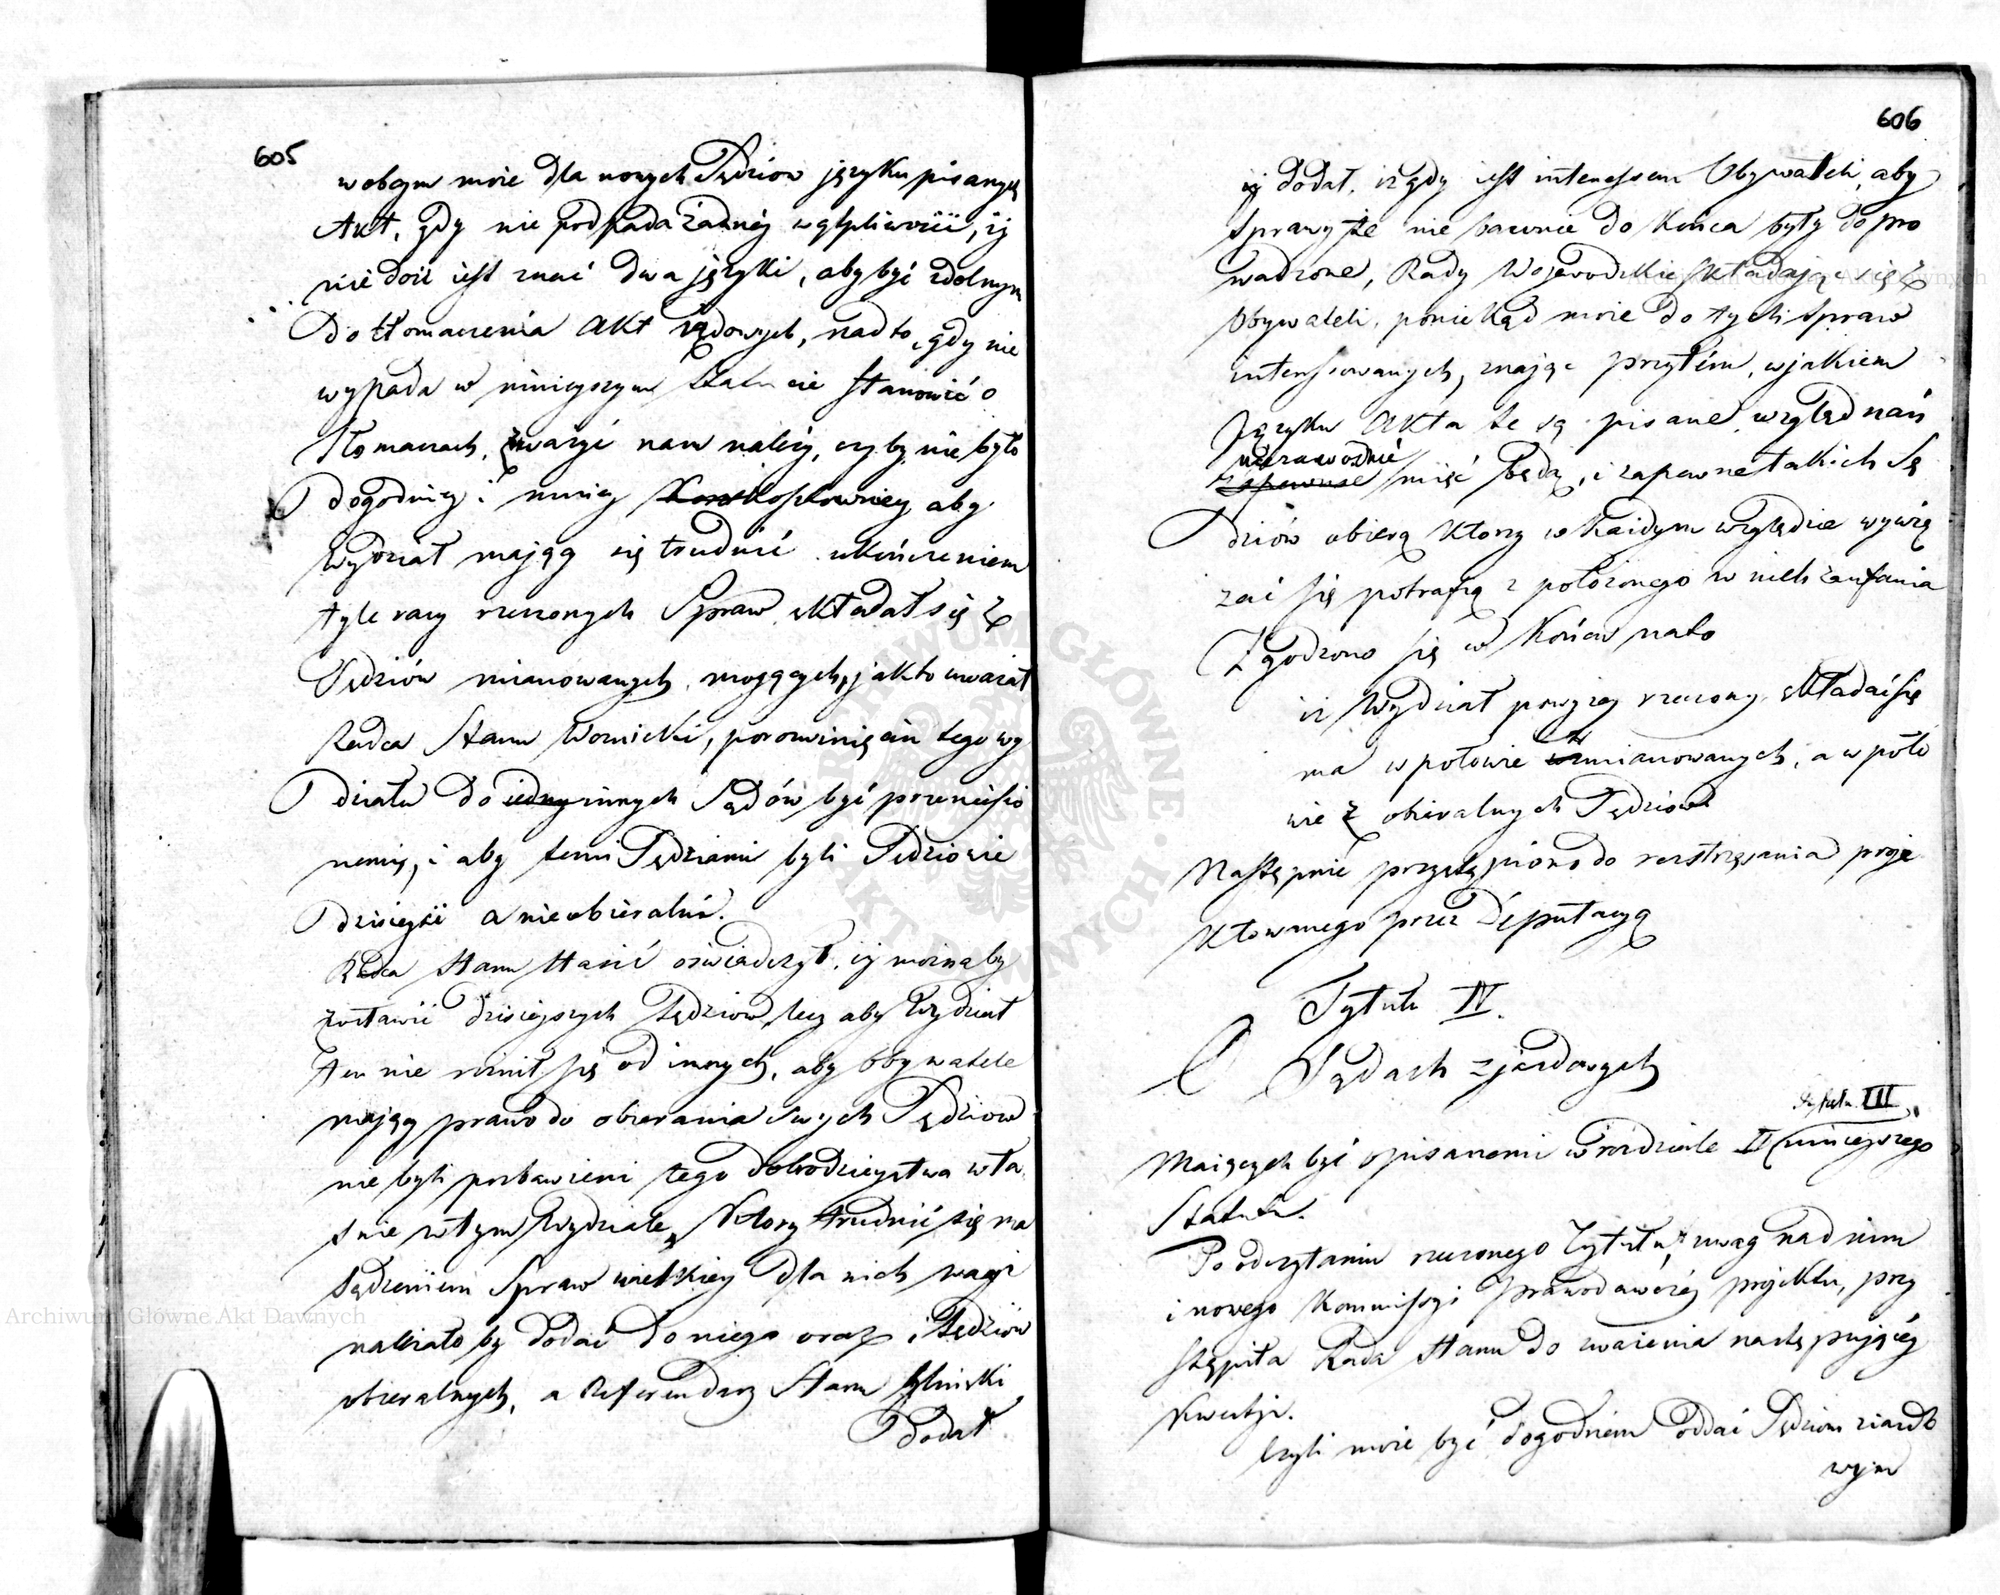 605
w obcym może dla nowych Sędziow języku pisanych
Akt, gdy nie podpada żadnéj wątpliwości, iż
nie dość iest znać dwa języki, aby być zdolnym
do tłomaczenia Akt sądowych, nadto, gdy nie
wypada w ninieyszym Statucie stanowić o
Tłomaczach, zważyć nam należy, czyby nie było
dogodniey i mniey kosztowniey aby
Wydział mający się trudnić ukończeniem
tyle razy rzeczonych Spraw składał się z
Sędziów mianowanych mogących, jak to uważał
Radca Stanu Woznicki, po rozwinięciu tego wy
działu do innych Sądów być przeniesio
nemi, i aby temi Sędziami byli Sędziowie
dzisieysi a nie obieralni.
Radca Stanu Staszic oświadczył, iż możnaby
zostawić dzisiejszych Sędziow, lecz aby Wydział
ten nie różnił się od innych, aby Obywatele
mający prawo do obierania swych Sędziow
nie byli pozbawieni tego dobrodzieystwa wła
śnie w tym Wydziale, który trudnić się ma
sądzeniem Spraw wielkiey dla nich wagi
należało by dodać do niego oraz i Sędziów
obieralnych, a Referendarz Stanu Gliński
dodał
606
dodał, iż gdy iest interessem Obywateli, aby
Sprawy te nie dawnie do końca były dopro
wadzone, Rady Wojewodzkie składając się z
Obywateli, poniekąd może do tych Spraw
interessowanych, mając przytém, w jakiem
Języku Akta te są pisane, wzgląd nań
niezawodnie
zapewne mieć będą, i zapewne takich Sę
dziów obiorą którzy w każdym względzie wywią
zać się potrafią z położonego w nich zaufania
Zgodzono się w końcu na to
iż Wydział powyżey rzeczony składać się
ma w połowie z mianowanych, a w poło
wie z obieralnych Sędziow
Następnie przystąpiono do roztrząsania proje
ktowanego przez Deputacyą
Tytułu IV.
O Sądach zjazdowych
Tytułu III
Maiących być opisanemi w rozdziale II ninieyszego
Statutu.
Po odczytaniu rzeczonego Tytułu, uwag nad nim
i nowego Kommissyi Prawodawczéj projektu, przy
stąpiła Rada Stanu do uważenia następującéj
Kwestyi.
Czyli może być dogodniem oddać Sędziom ziazdo
wym
Archiwum Główne Akt Dawnych
Archiwum Główne Akt Dawnych
ARCHIWUM GŁÓWNE AKT DAWNYCH